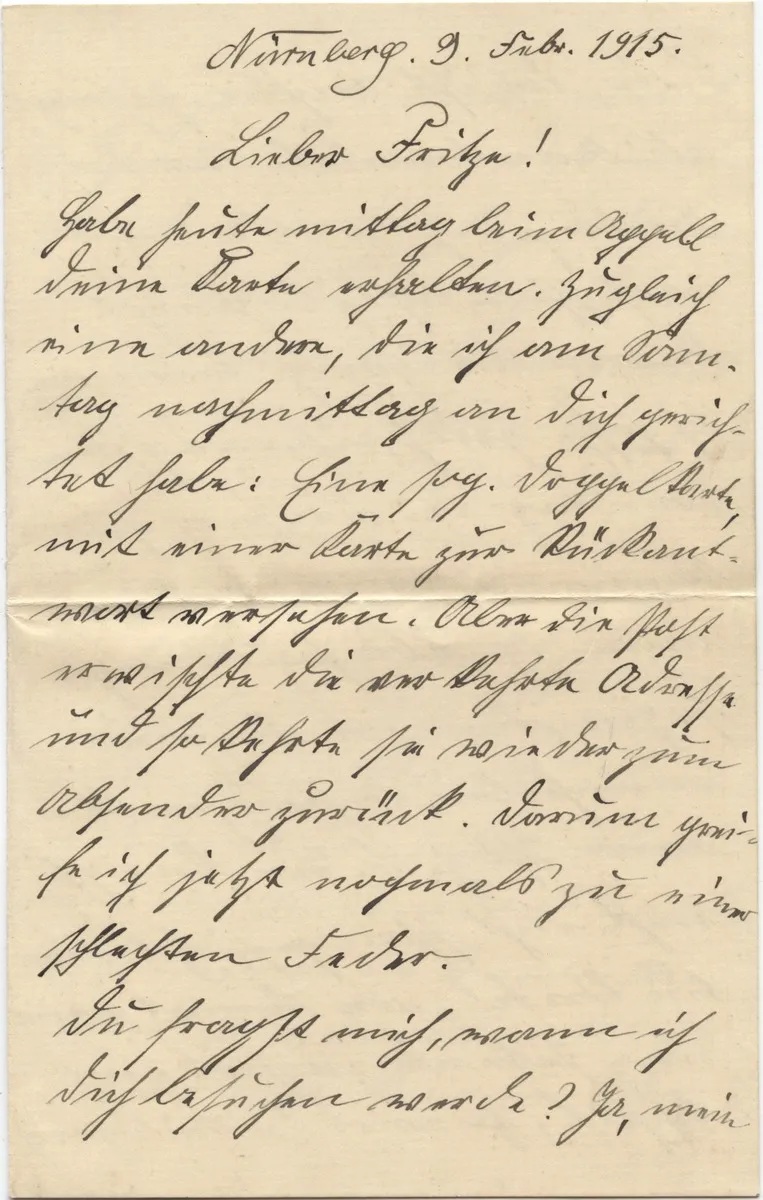 Nürnberg. 9. Febr. 1915.
Lieber Fritze!
Habe heute mittag beim Appell
deine Karte erhalten. Zugleich
eine andere, die ich am Sonn-
tag nachmittag an dich gerich-
tet habe: Eine sog. Doppelkarte,
mit einer Karte zur Rückant-
wort versehen. Aber die Post
erwischte die verkehrte Adresse
und so kehrte sie wieder zum
Absender zurück. Darum grei-
fe ich jetzt nochmals zu einer
schlechten Feder.
Du fragst mich, wann ich
dich besuchen werde? Ja, mein